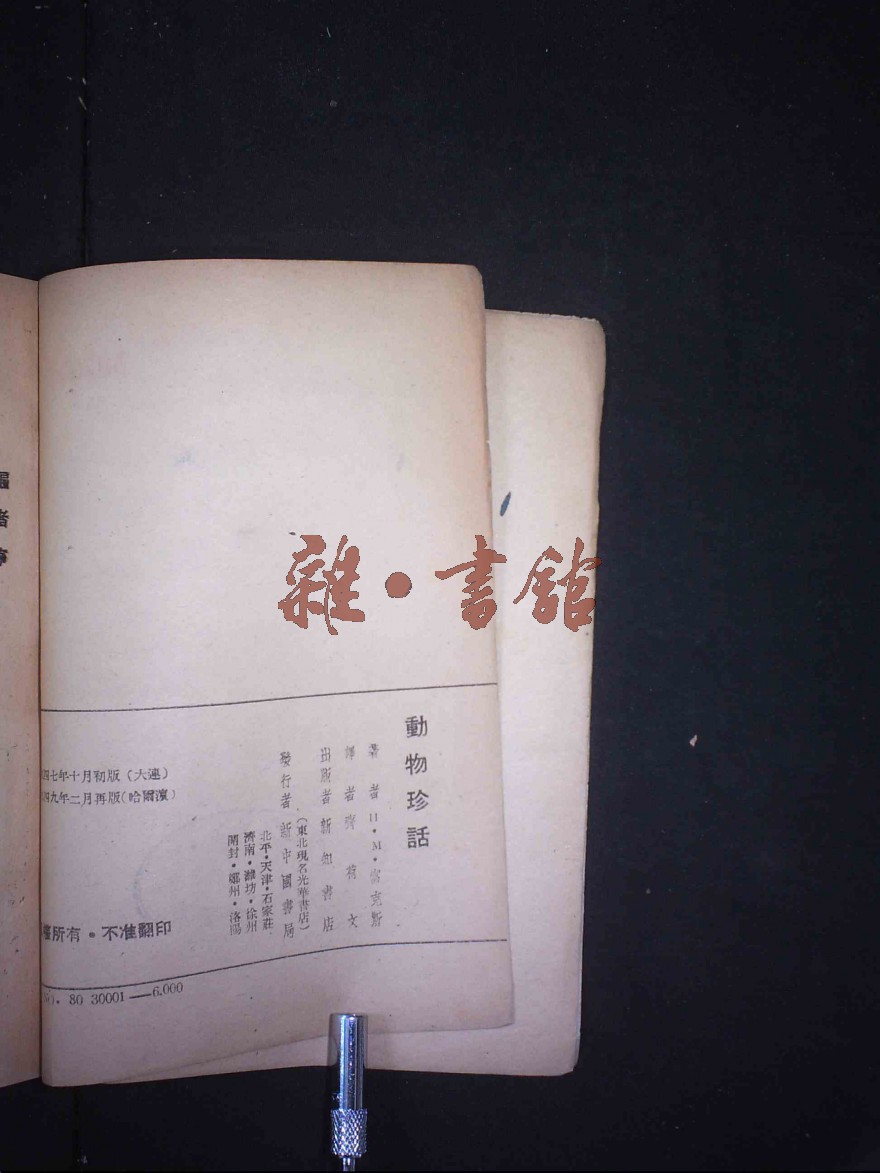 動物珍話
著者 H·M·富克斯
譯者 齊荷文
出版者 新知書店
發行者 新中國書局
(東北現名光華書店)
北平·天津·石家莊
濟南·濰坊·徐州
開封·鄭州·洛陽
四七年十月初版(大連)
四九年二月再版(哈爾濱)
權所有·不准翻印
80 30001—6.000
者
雜·書館